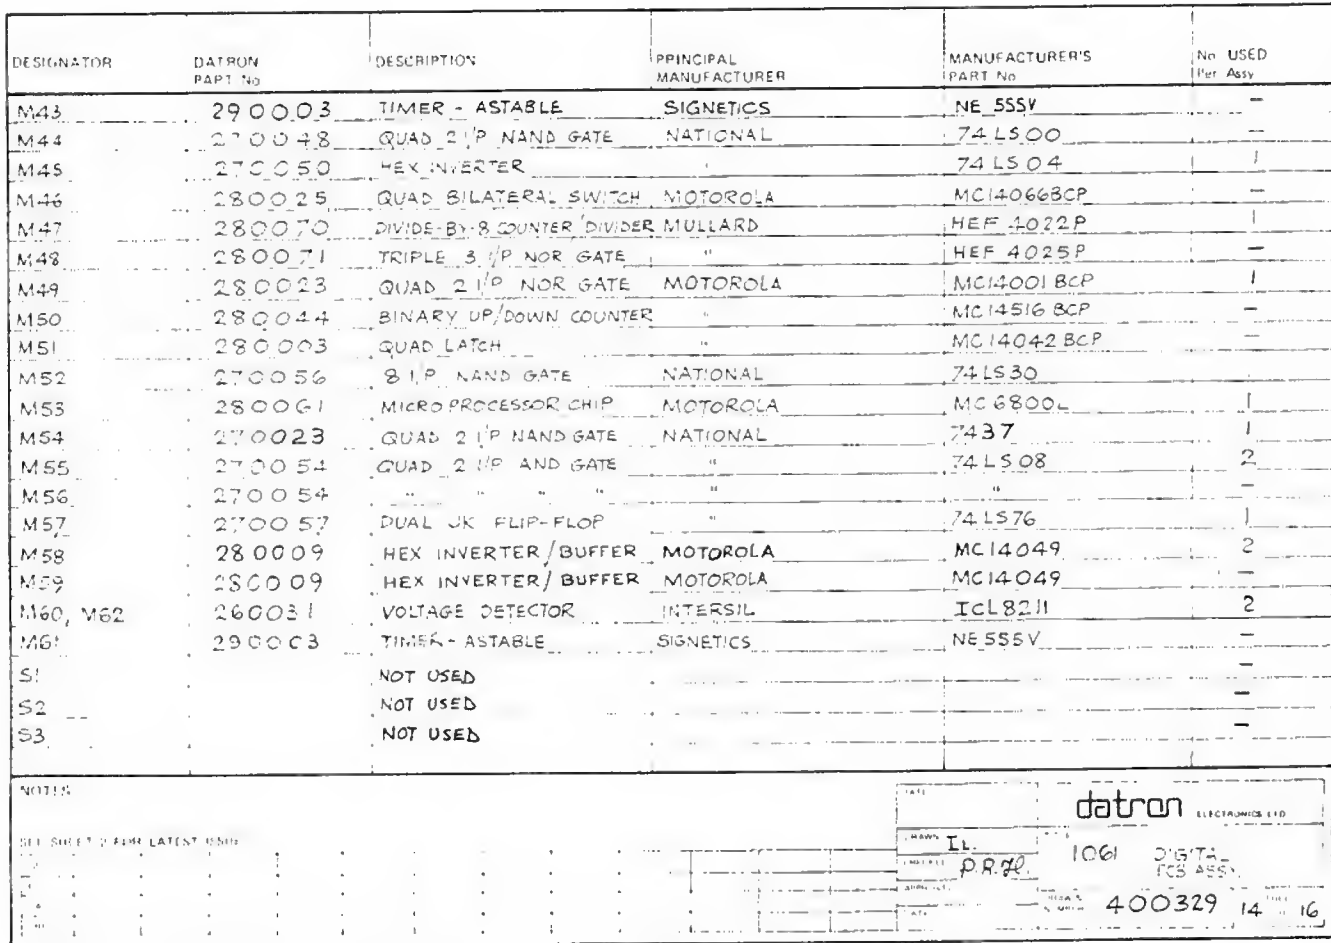 DESIGNATOR DATRON PART No DESCRIPTION PRINCIPAL MANUFACTURER MANUFACTURER'S PART No No USED Per Assy
M43 290003 TIMER - ASTABLE SIGNETICS NE 555V -
M44 270048 QUAD 2 I/P NAND GATE NATIONAL 74LS00 -
M45 270050 HEX INVERTER " 74LS04 1
M46 280025 QUAD BILATERAL SWITCH MOTOROLA MC14066BCP -
M47 280070 DIVIDE-BY-8 COUNTER/DIVIDER MULLARD HEF 4022P 1
M48 280071 TRIPLE 3 I/P NOR GATE " HEF 4025P -
M49 280023 QUAD 2 I/P NOR GATE MOTOROLA MC14001 BCP 1
M50 280044 BINARY UP/DOWN COUNTER " MC14516 BCP -
M51 280003 QUAD LATCH " MC14042 BCP -
M52 270056 8 I/P NAND GATE NATIONAL 74LS30
M53 280061 MICROPROCESSOR CHIP MOTOROLA MC6800L 1
M54 270023 QUAD 2 I/P NAND GATE NATIONAL 7437 1
M55 270054 QUAD 2 I/P AND GATE " 74LS08 2
M56 270054 " " " " " " -
M57 270057 DUAL JK FLIP-FLOP " 74LS76 1
M58 280009 HEX INVERTER/BUFFER MOTOROLA MC14049 2
M59 280009 HEX INVERTER/BUFFER MOTOROLA MC14049 -
M60, M62 260031 VOLTAGE DETECTOR INTERSIL ICL8211 2
M61 290003 TIMER - ASTABLE SIGNETICS NE555V -
S1 NOT USED -
S2 NOT USED -
S3 NOT USED -
NOTES
SEE SHEET 2 FOR LATEST ISSUE
DATE
datron ELECTRONICS LTD
DRAWN IL.
CHECKED P.R.H.
TITLE
1061 DIGITAL
PCB ASSY
DATE
DRAWING NUMBER 400329 14 16